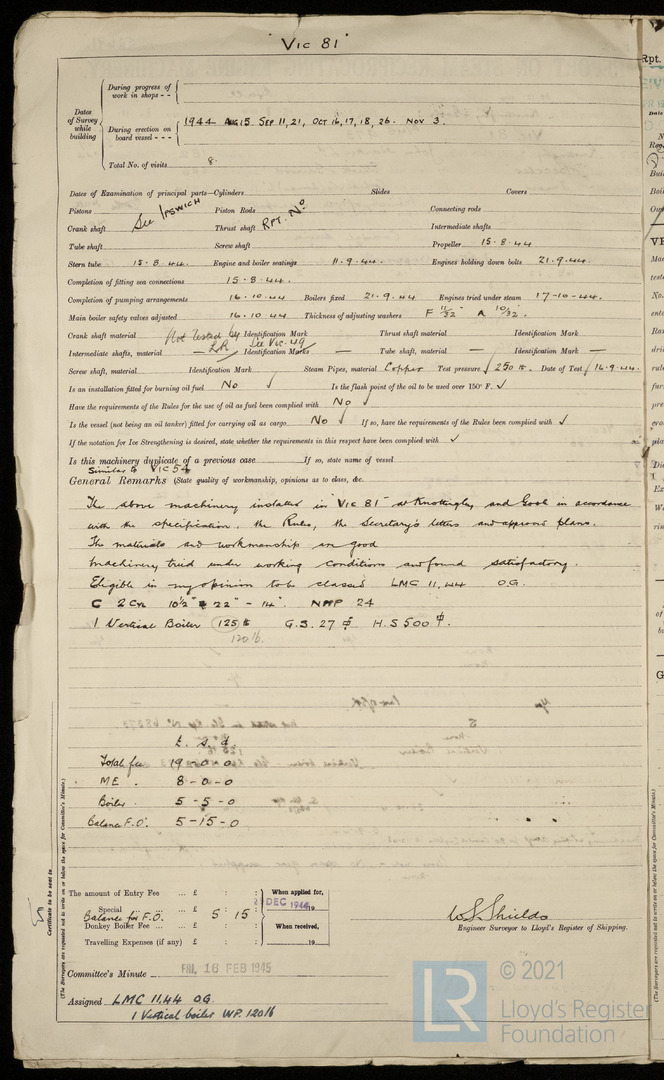 "Vic 81"
Rpt.
During progress of work in shops - -
Dates of Survey while building
During erection on board vessel - - - 1944 Aug 15. Sep 11, 21, Oct 16, 17, 18, 26. Nov 3.
Total No. of visits 8.
Dates of Examination of principal parts—Cylinders Slides Covers
Pistons Piston Rods Connecting rods
See Ipswich Rpt. No
Crank shaft Thrust shaft Intermediate shafts
Tube shaft Screw shaft Propeller 15.8.44
Stern tube 15.8.44. Engine and boiler seatings 11.9.44. Engines holding down bolts 21.9.44.
Completion of fitting sea connections 15.8.44.
Completion of pumping arrangements 16.10.44 Boilers fixed 21.9.44 Engines tried under steam 17-10-44.
Main boiler safety valves adjusted 16.10.44 Thickness of adjusting washers F 11/32" A 10/32".
Crank shaft material Not Tested by LR Identification Mark See Vic 49 Thrust shaft material Identification Mark
Intermediate shafts, material — Identification Marks — Tube shaft, material — Identification Mark —
Screw shaft, material Identification Mark Steam Pipes, material Copper Test pressure 250 lb. Date of Test 16.9.44.
Is an installation fitted for burning oil fuel No ✓ Is the flash point of the oil to be used over 150° F. ✓
Have the requirements of the Rules for the use of oil as fuel been complied with No ✓
Is the vessel (not being an oil tanker) fitted for carrying oil as cargo No ✓ If so, have the requirements of the Rules been complied with ✓
If the notation for Ice Strengthening is desired, state whether the requirements in this respect have been complied with ✓
Is this machinery duplicate of a previous case If so, state name of vessel
Similar to Vic 54
General Remarks (State quality of workmanship, opinions as to class, &c.
The above machinery installed in "Vic 81" at Knottingley and Goole in accordance
with the specification, the Rules, the Secretary's letters and approved plans.
The materials and workmanship are good
Machinery tried under working conditions and found satisfactory.
Eligible in my opinion to be classed LMC 11,44 O.G.
C 2 Cyl 10½" & 22" - 14". NHP 24
1 Vertical Boiler 125 lb G.S. 27 ☐ H.S 500 ☐.
120 lb.
£. s. d.
Total fee 19-0-0
ME. 8-0-0
Boiler. 5-5-0
Balance F.O. 5-15-0
(The Surveyors are requested not to write on or below the space for Committee's Minute.)
Certificate to be sent to
The amount of Entry Fee ... £ : : When applied for,
Special Balance for F.O. ... £ 5 : 15 : DEC 1944 19
Donkey Boiler Fee ... £ : : When received,
Travelling Expenses (if any) £ : : 19
W S Shields
Engineer Surveyor to Lloyd's Register of Shipping.
Committee's Minute FRI. 16 FEB 1945
Assigned LMC 11.44 OG
1 Vertical boiler WP. 120 lb
LR © 2021
Lloyd's Register
Foundation